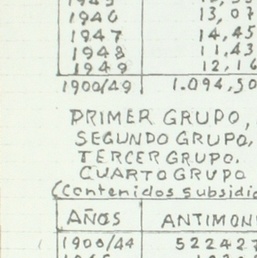 1946 13,07
1947 14,45
1948 11,43
1949 12,16
1900/49 1.094,50
PRIMER GRUPO,
SEGUNDO GRUPO,
TERCER GRUPO.
CUARTO GRUPO
(contenidos subsidi
AÑOS ANTIMON
1900/44 522427